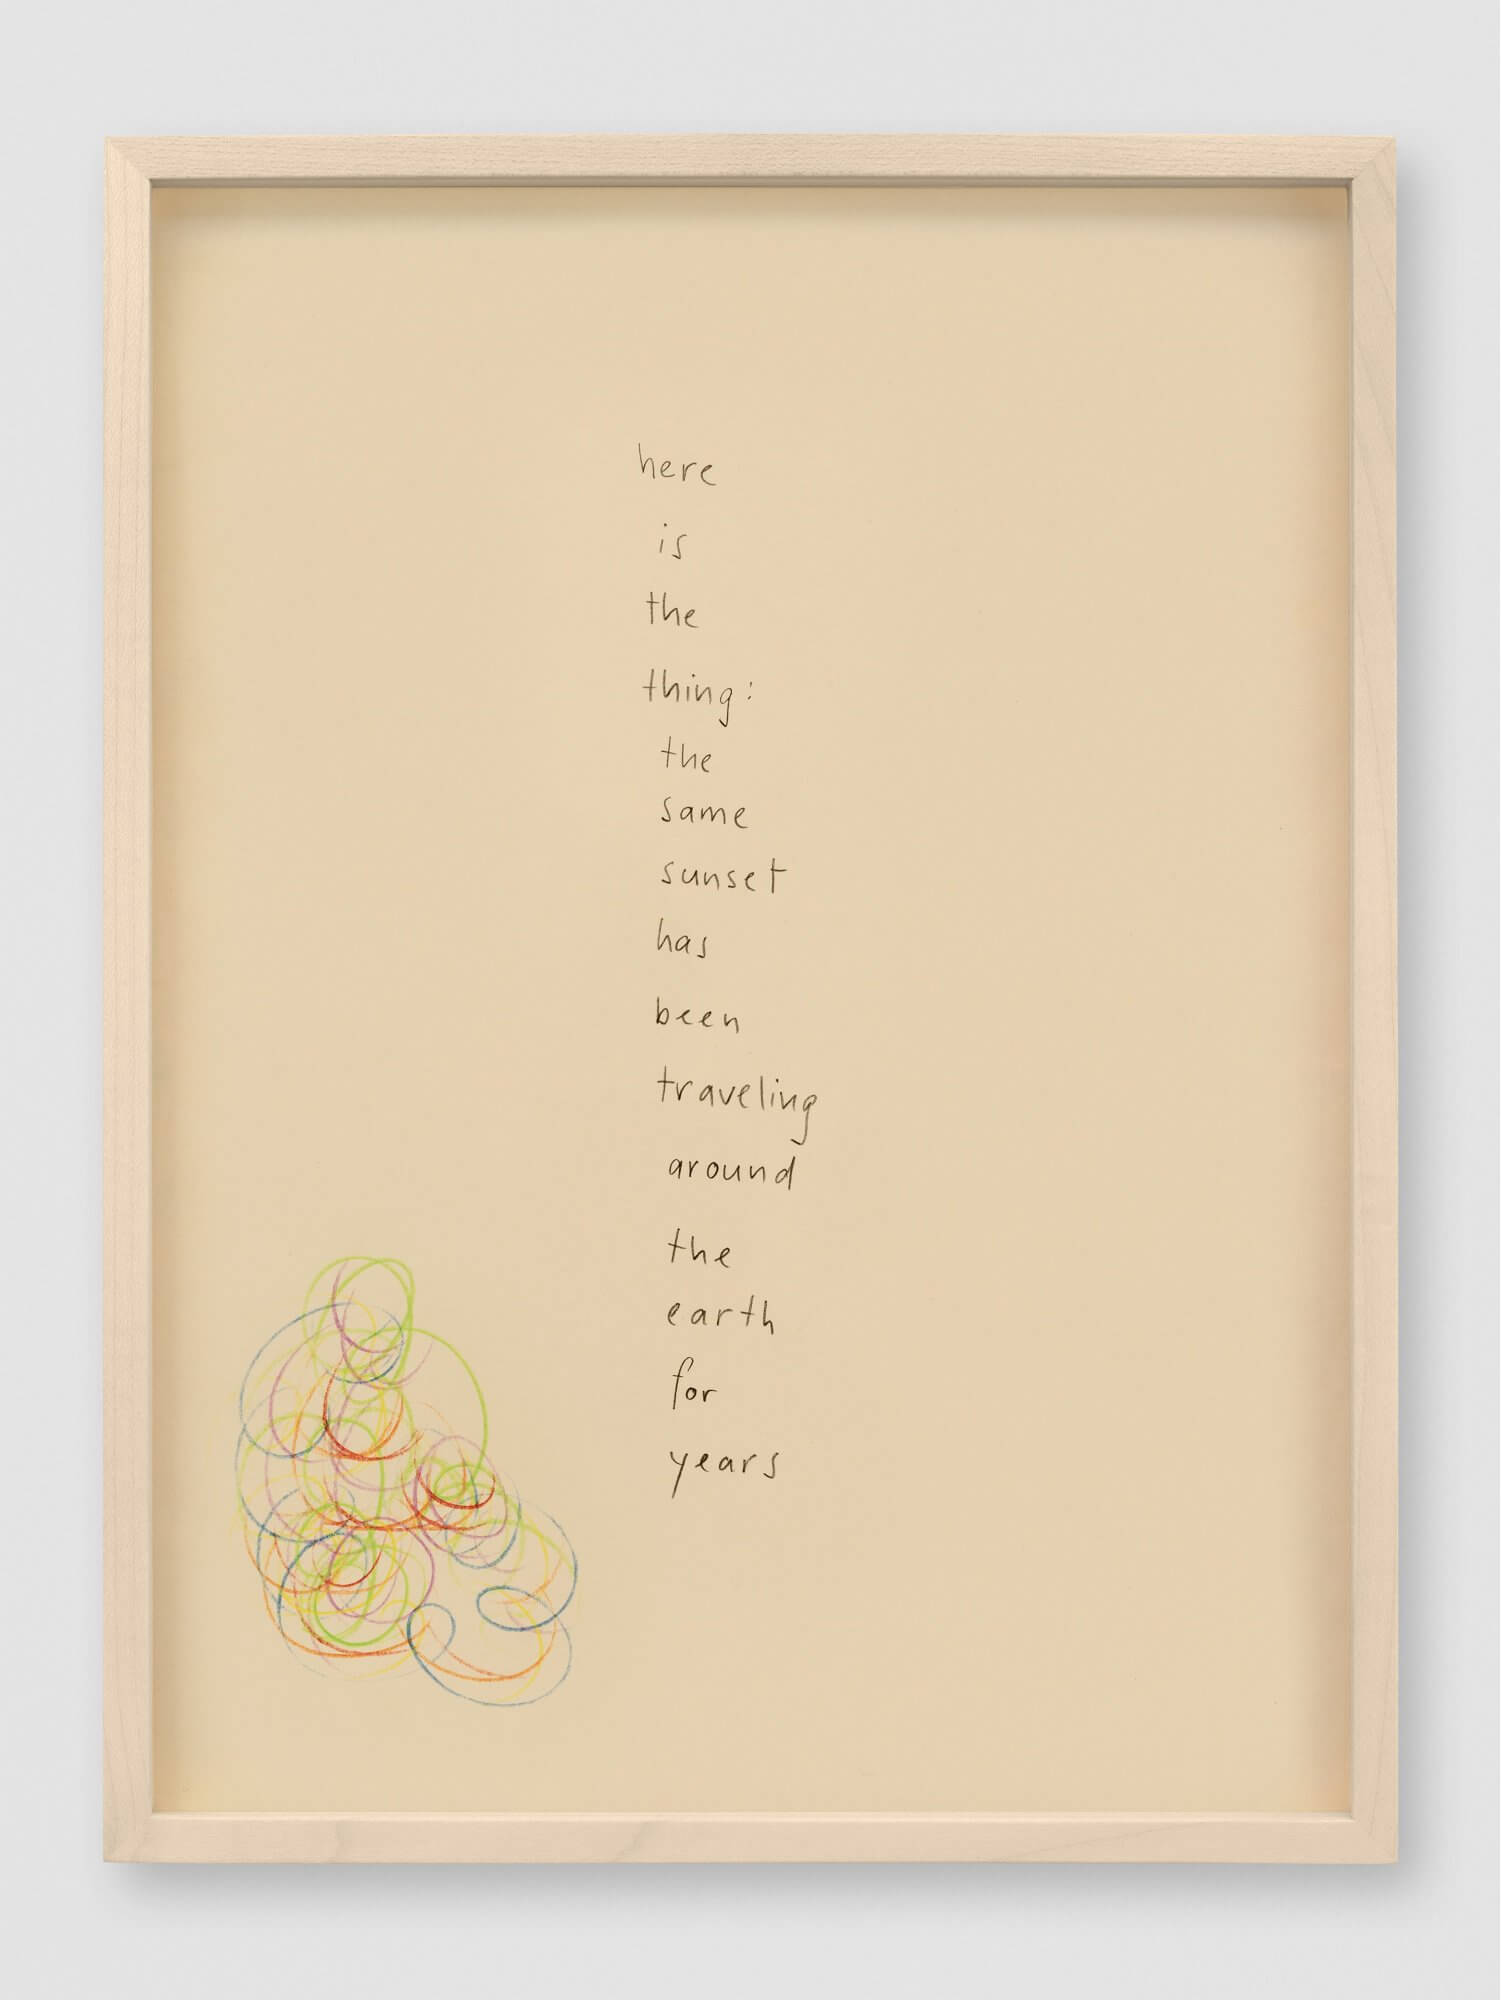 here
is
the
thing:
the
same
sunset
has
been
traveling
around
the
earth
for
years